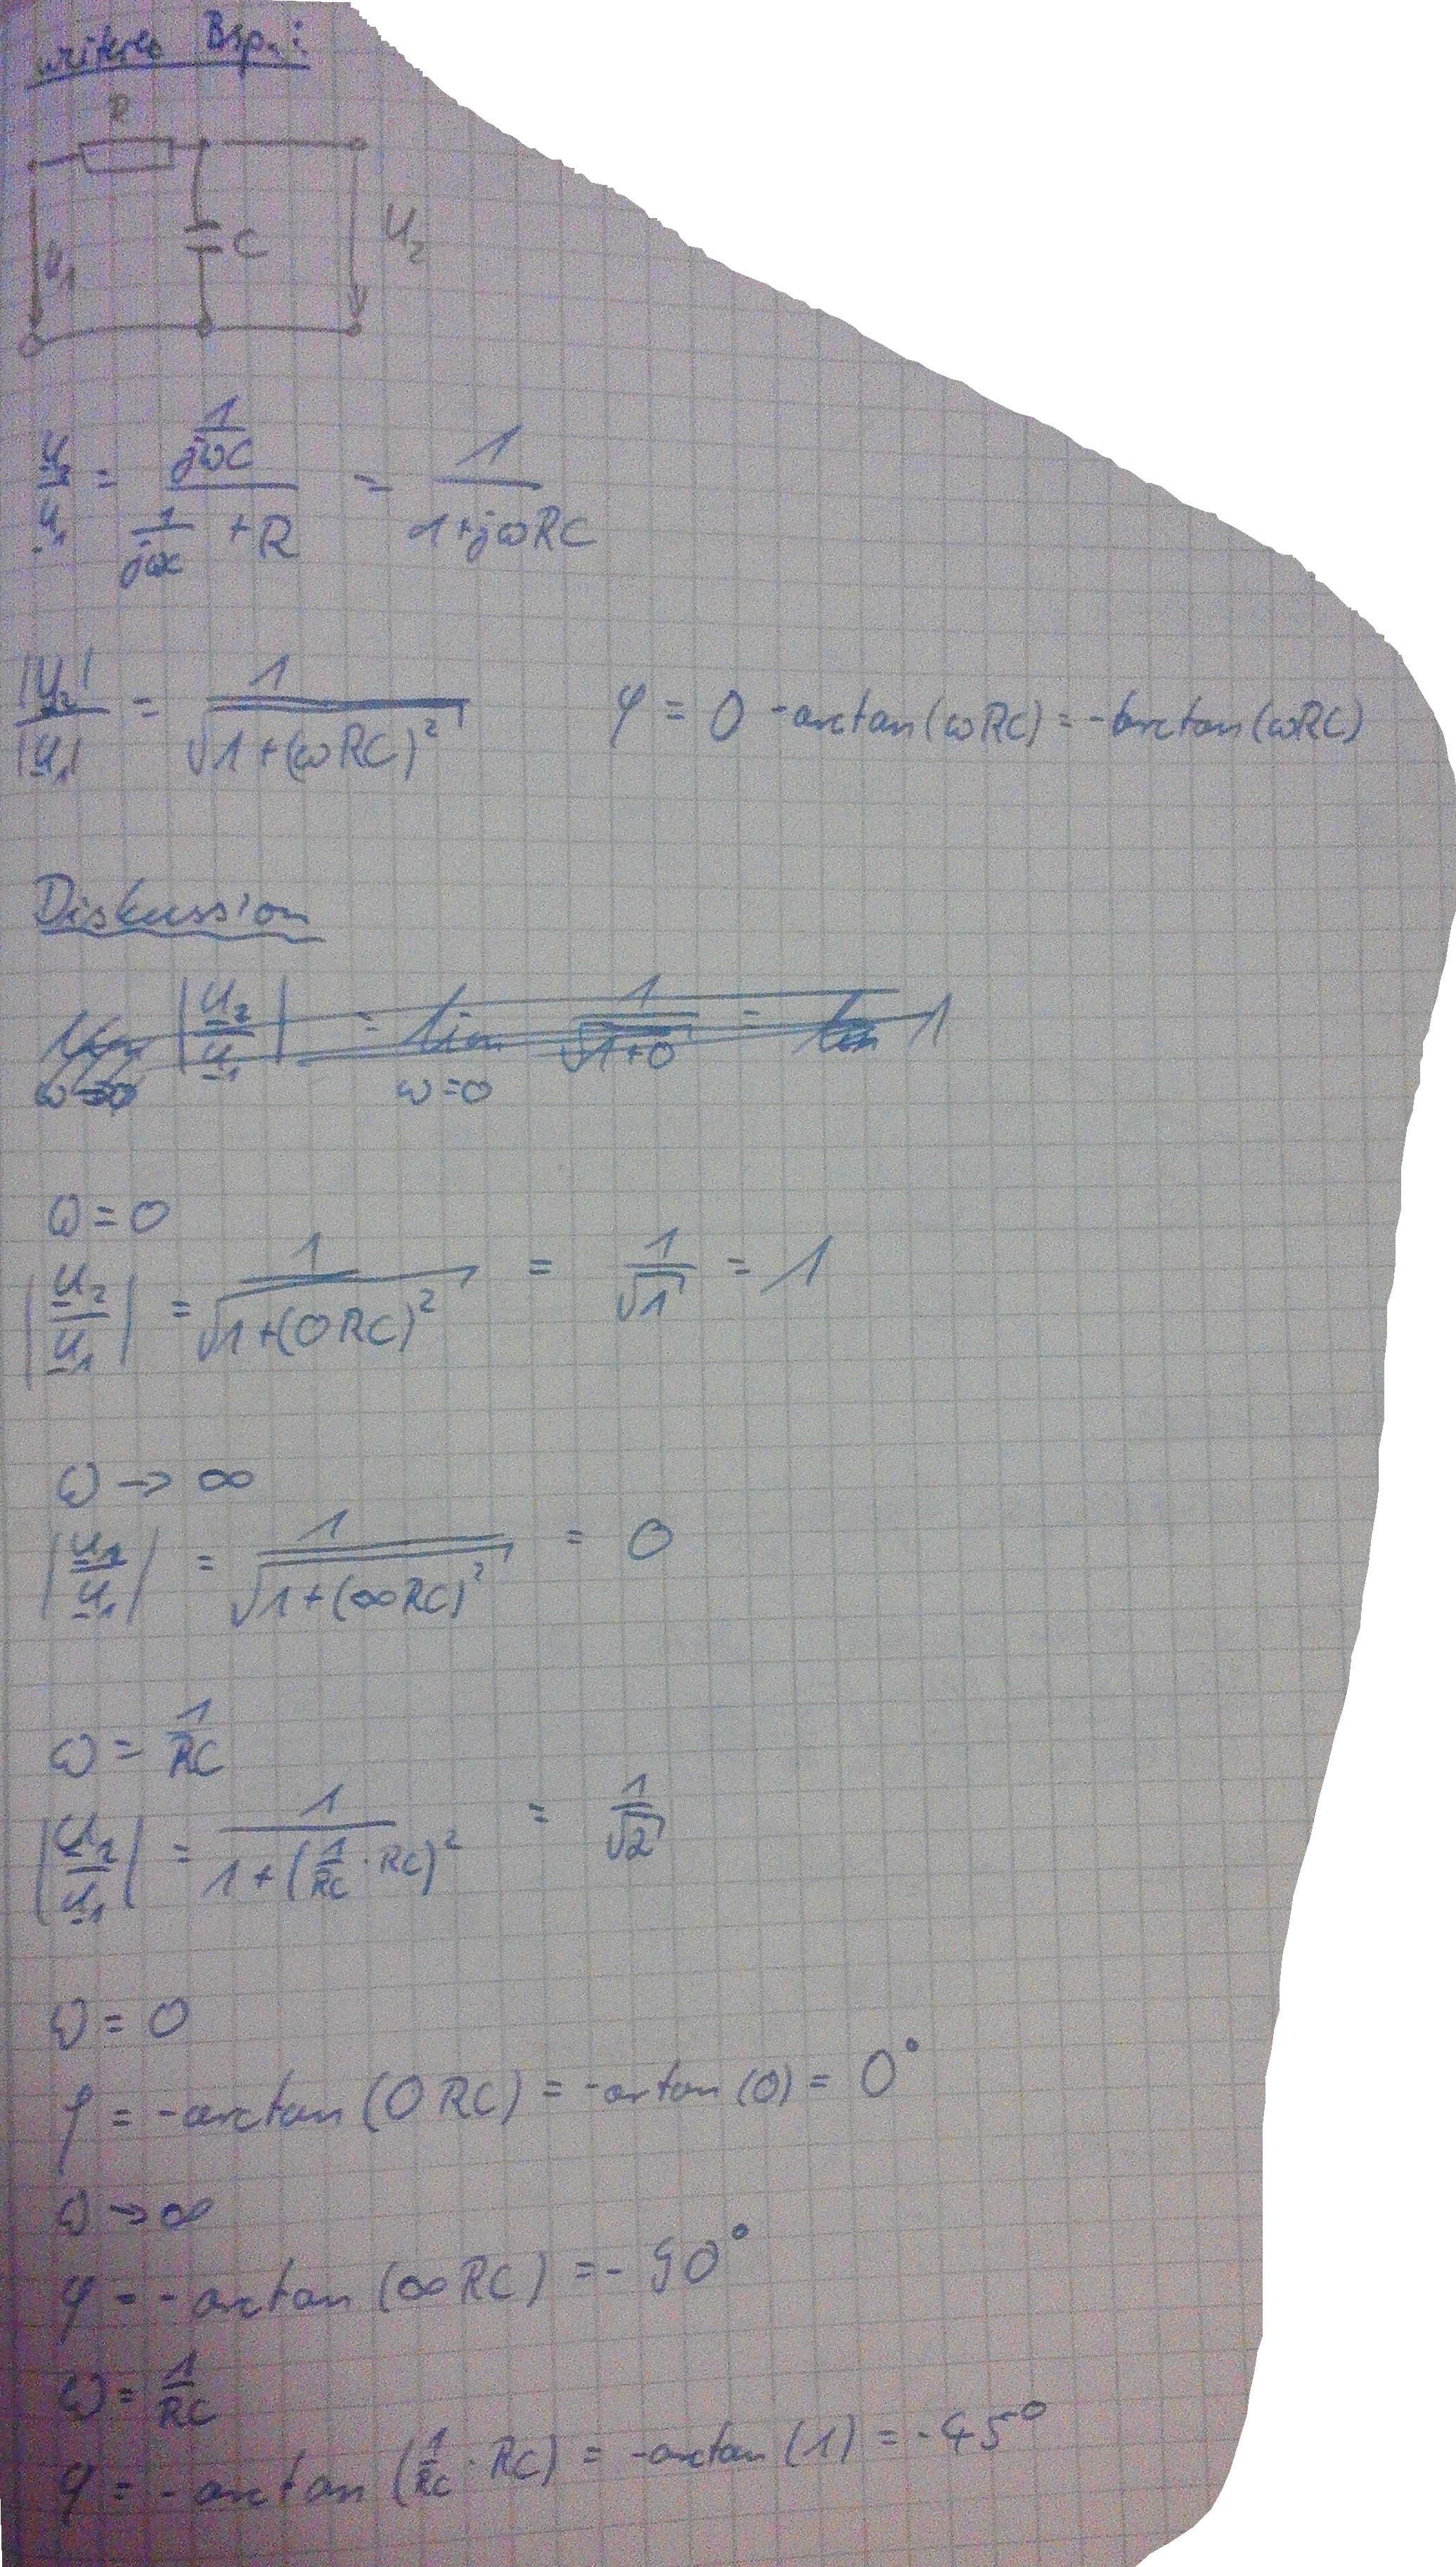 weiteres Bsp.:
R
U₁ C U₂
U₂/U₁ = (1/jωC)/(1/jωC + R) = 1/(1+jωRC)
|U₂|/|U₁| = 1/√(1+(ωRC)²) φ = 0 - arctan(ωRC) = -arctan(ωRC)
Diskussion
lim ω→0 |U₂/U₁| = lim ω=0 1/√(1+0) = lim 1
ω = 0
|U₂/U₁| = 1/√(1+(0RC)²) = 1/√1 = 1
ω → ∞
|U₂/U₁| = 1/√(1+(∞RC)²) = 0
ω = 1/RC
|U₂/U₁| = 1/(1+(1/RC · RC)²) = 1/√2
ω = 0
φ = -arctan(0RC) = -artan(0) = 0°
ω → ∞
φ = -arctan(∞RC) = -90°
ω = 1/RC
φ = -arctan(1/RC · RC) = -arctan(1) = -45°